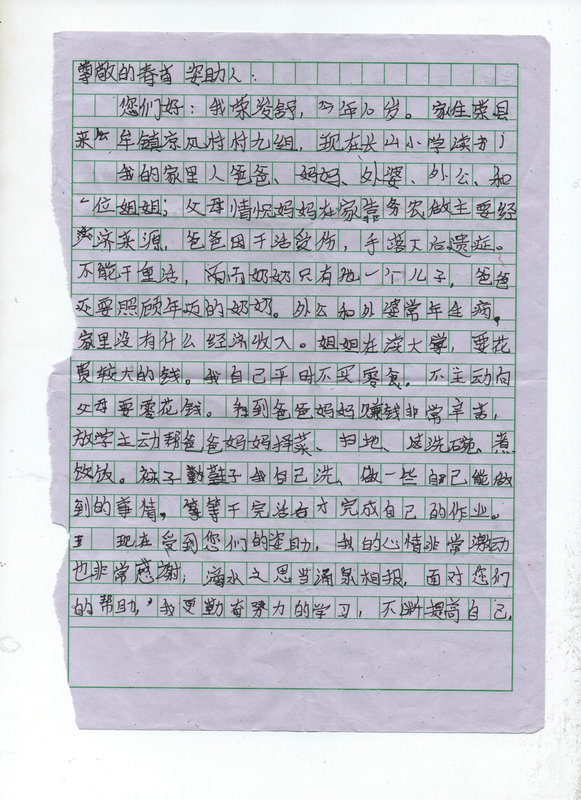 尊敬的春苗姿助人：
您们好：我荣发舒，今年10岁。家住荣县
来牟镇凉风村村九组，现在长山小学读书，
我的家里人爸爸、妈妈、外婆、外公、和
一位姐姐；父母情况妈妈在家靠务农做主要经
济来源，爸爸因干活受伤，手落大后遗症。
不能干重活，而奶奶只有他一个儿子，爸爸
还要照顾年迈的奶奶。外公和外婆常年生病，
家里没有什么经济收入。姐姐在读大学，要花
费较大的钱。我自己平时不买零食，不主动向
父母要零花钱。看到爸爸妈妈赚钱非常辛苦，
放学主动帮爸爸妈妈择菜、扫地、还洗碗、煮
饮饭。袜子鞋子我自己洗，做一些自己能做
到的事情，等干完活后才完成自己的作业。
现在受到您们的姿助，我的心情非常激动
也非常感谢；滴水之恩当涌泉相报，面对您们
的帮助，我更勤奋努力的学习，不断提高自己，